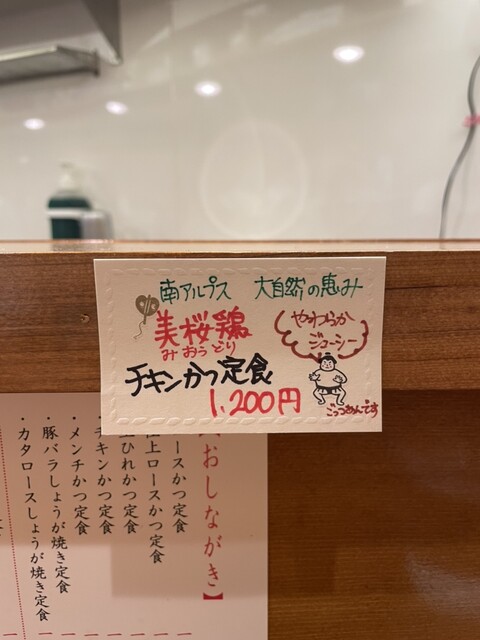 南アルプス 大自然の恵み
美桜鶏
みおうどり
やわらか
ジューシー
チキンかつ定食
1,200円
ごっつあんです
おしながき】
ースかつ定食
上ロースかつ定食
ひれかつ定食
チキンかつ定食
・メンチかつ定食
・豚バラしょうが焼き定食
・カタロースしょうが焼き定食